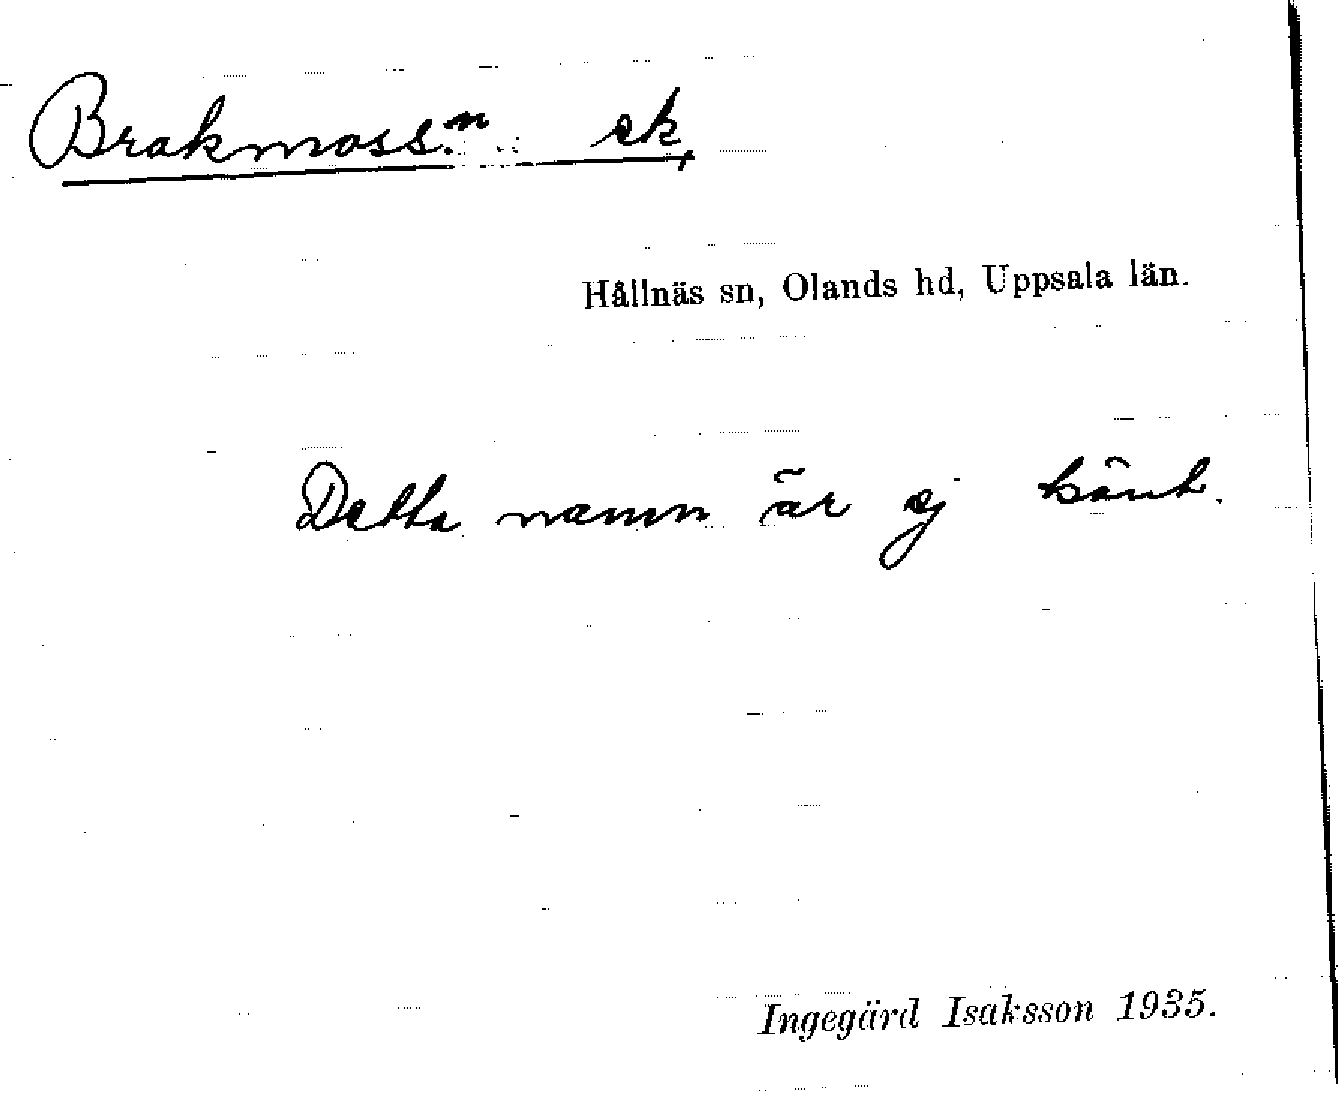 Brakmoss:n ek,
Hållnäs sn, Olands hd, Uppsala län.
Detta namn är ej känt.
Ingegärd Isaksson 1935.